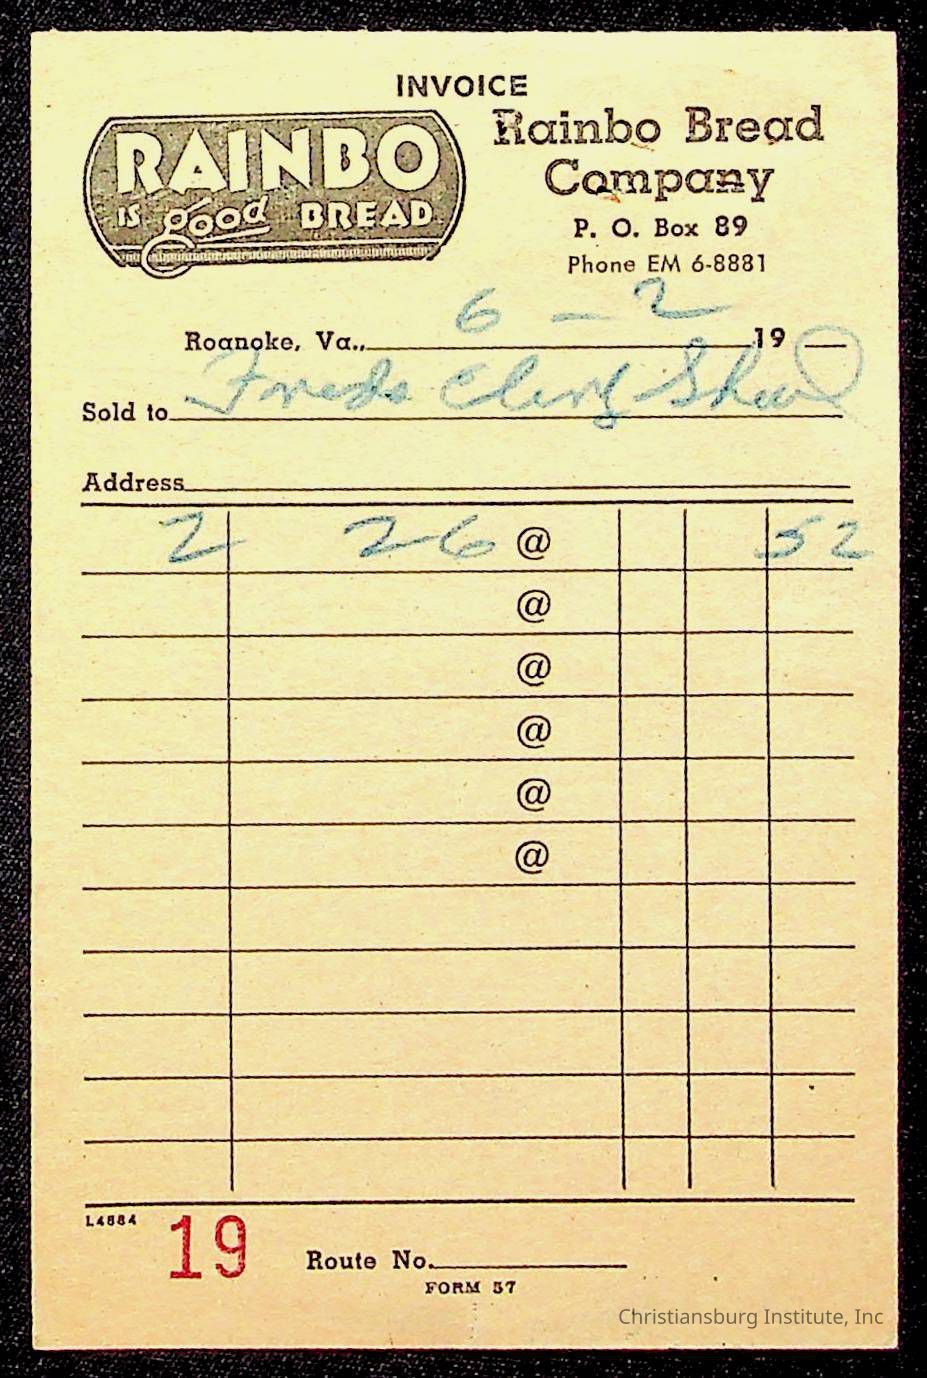 INVOICE
RAINBO
IS good BREAD
Rainbo Bread
Company
P. O. Box 89
Phone EM 6-8881
Roanoke, Va., 6 - 2 19
Sold to Freds
Address
2 26 @ 52
@
@
@
@
@
L4884
19 Route No.
FORM 57
Christiansburg Institute, Inc